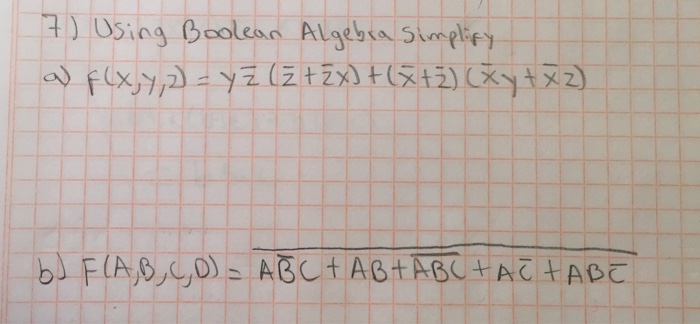 7) Using Boolean Algebra Simplify
a) F(x,y,z) = yz̅ (z̅ + z̅x) + (x̅ + z̅) (x̅y + x̅z)
b) F(A,B,C,D) = \overline{AB̅C + AB + \overline{ABC} + AC̅ + ABC̅}